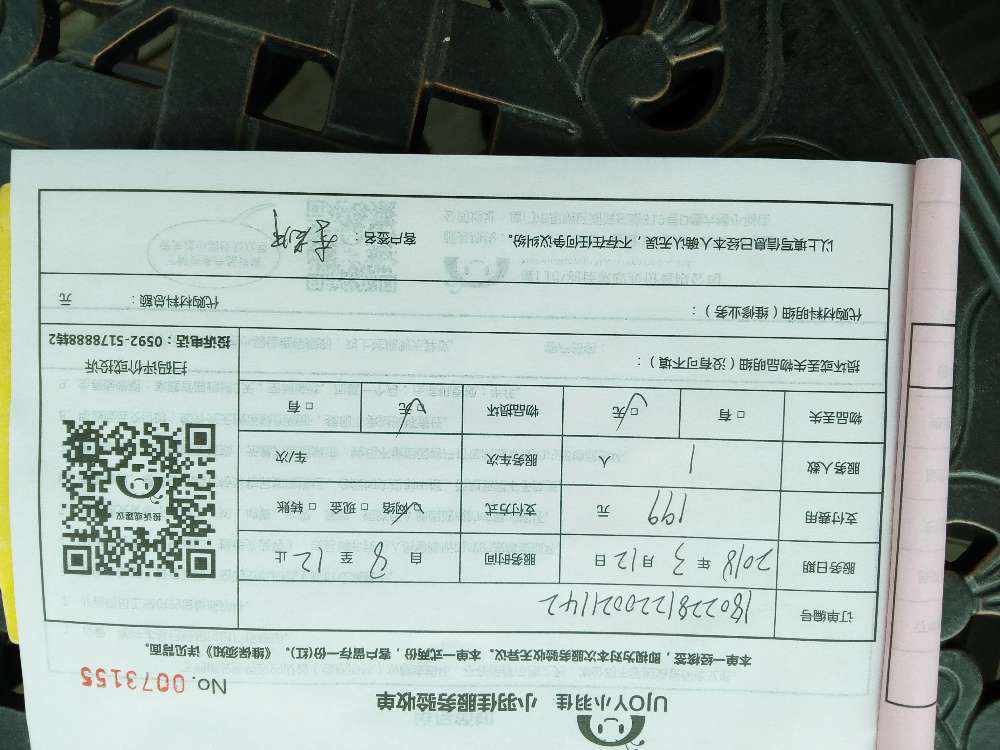 UJOY小羽佳 小羽佳服务验收单
No. 0073155
本单一经签签，即视为对本次服务验收无异议。本单一式两份，客户留存一份(红)。《维保须知》详见背面。
订单编号 1802281220021142
服务日期 2018 年 3 月 12 日 服务时间 自 8 至 12 止
支付费用 199 元 支付方式 ☑网络 □现金 □转账
服务人数 1 人 服务车次 车/次
物品丢失 □有 ☑无 物品损坏 ☑无 □有
投诉或建议
扫码评价或投诉
投诉电话：0592-5178888转2
损坏或丢失物品明细（没有可不填）：
代购材料明细（维修业务）： 代购材料总额： 元
以上填写信息已经本人确认无误，不存在任何争议纠纷。 客户签名：